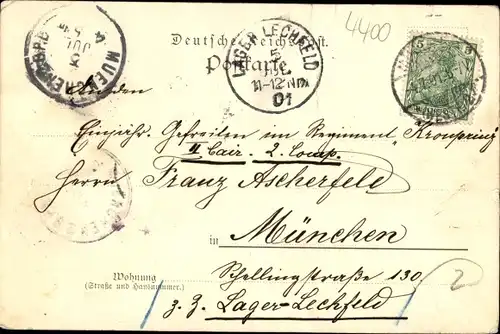 4400
Deutsche Reichspost.
Postkarte
LAGER LECHFELD
5
JUL
11-12 Nm
01
MUENCHEN B.P.B
JUL
4
5
An den
Einjähr. Gefreiten im Regiment „Kronprinz
II. Cair. 2. Comp.
Herrn Franz Ascherfeld
in München
Wohnung
(Straße und Hausnummer.)
Schellingstraße 130
2
z. Z. Lager-Lechfeld